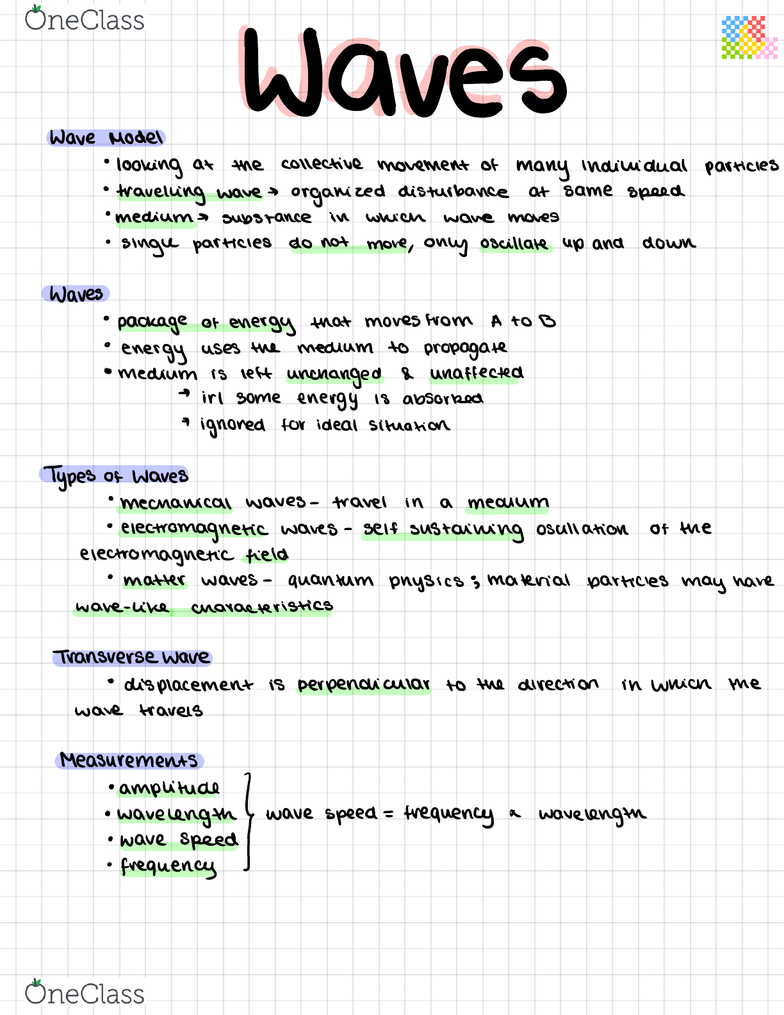 OneClass
Waves
Wave Model
• looking at the collective movement of many individual particles
• travelling wave → organized disturbance at same speed
• medium → substance in which wave moves
• single particles do not move, only oscillate up and down
Waves
• package of energy that moves from A to B
• energy uses the medium to propagate
• medium is left unchanged & unaffected
→ irl some energy is absorbed
→ ignored for ideal situation
Types of Waves
• mechanical waves - travel in a medium
• electromagnetic waves - self sustaining oscillation of the
electromagnetic field
• matter waves - quantum physics; material particles may have
wave-like characteristics
Transverse Wave
• displacement is perpendicular to the direction in which the
wave travels
Measurements
• amplitude
• wavelength
wave speed = frequency x wavelength
• wave speed
• frequency
OneClass